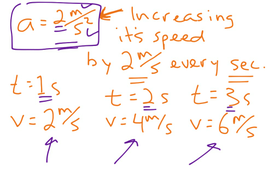 a = 2 m/s² ← Increasing
its speed
by 2 m/s every sec.
t = 1s t = 2s t = 3s
v = 2 m/s v = 4 m/s v = 6 m/s